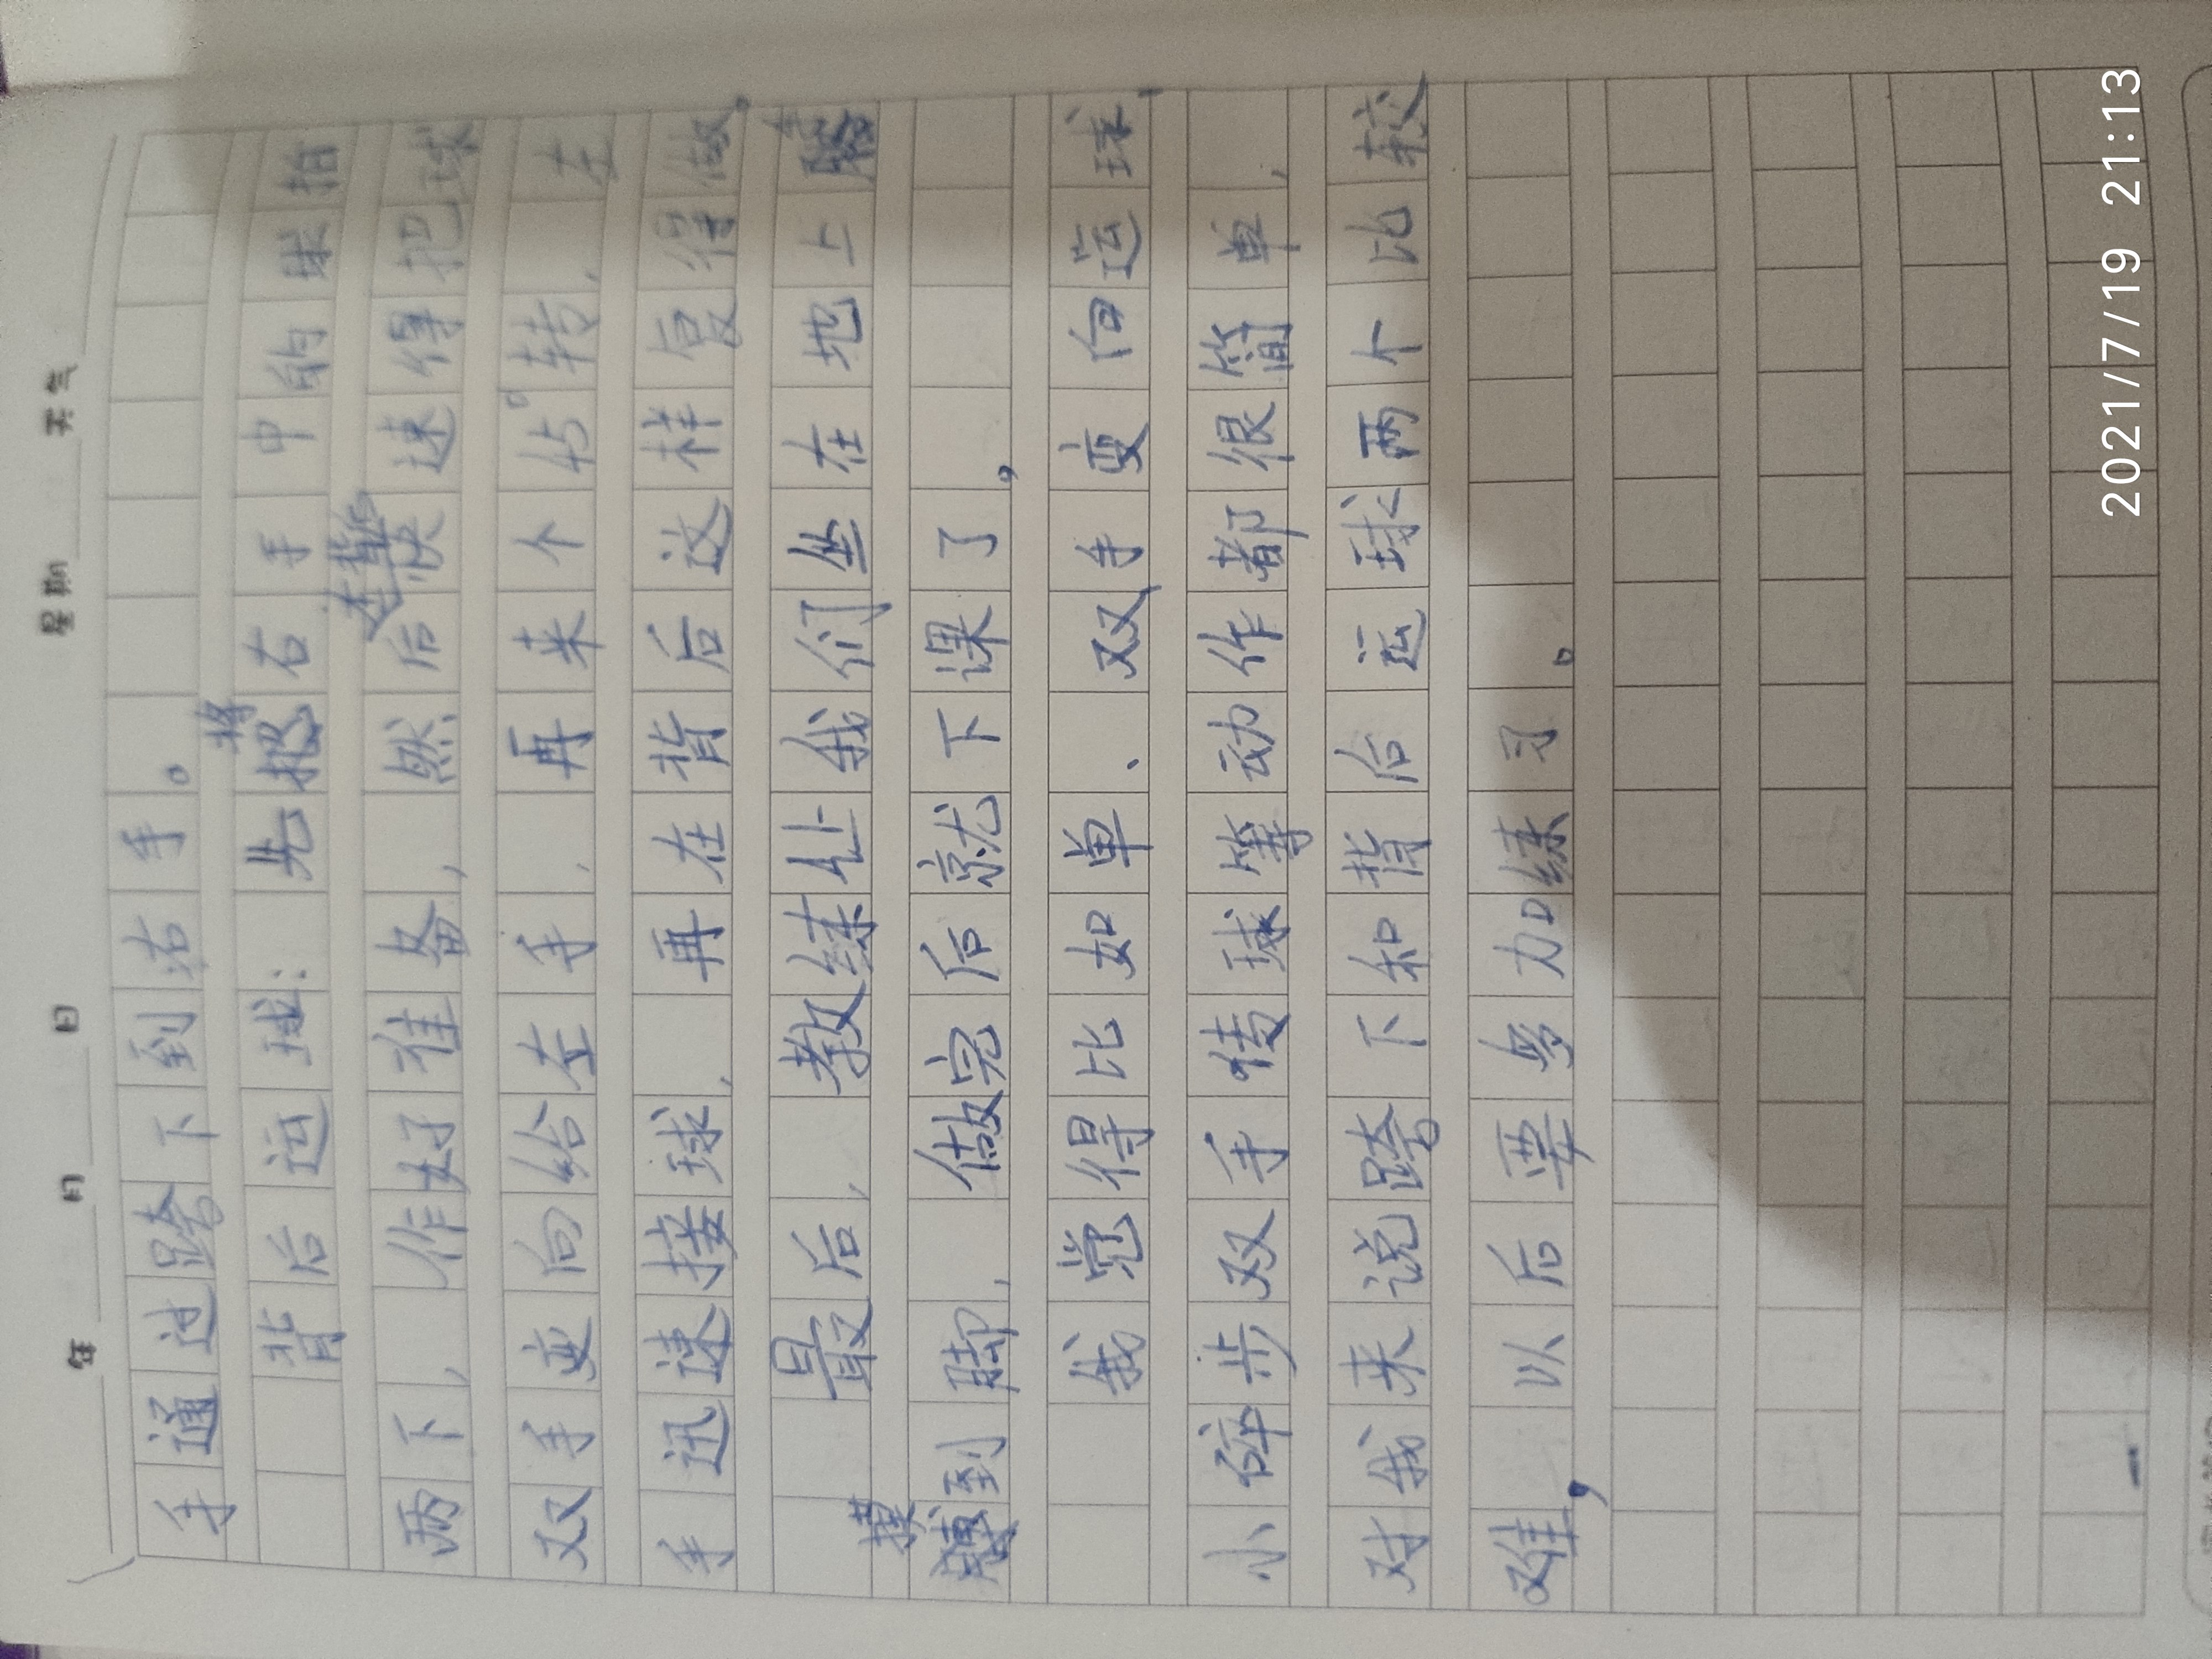 年 月 日 星期 天气
手通过跨下到右手。
背后运球:先将右手中的球拍
两下,作好准备,然后快速得把球
双手变向给左手,再来个45°转,左
手迅速接球,再在背后这样复得做。
最后,教练让我们坐在地上
摸到脚,做完后就下课了。
我觉得比如单、双手变向运球,
小碎步双手传球等动作都很简单,
对我来说跨下和背后运球两个比较
难,以后要多加练习。
2021/7/19 21:13